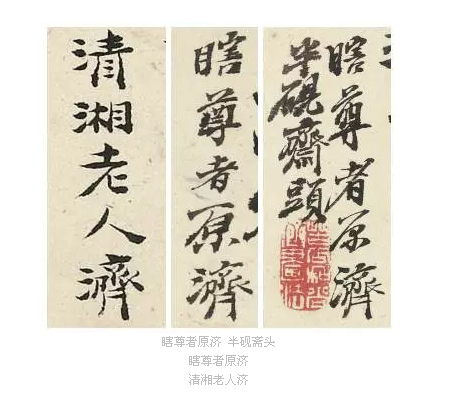 瞎尊者原濟
半硯齋頭
瞎尊者原濟
清湘老人濟
瞎尊者原济 半砚斋头
瞎尊者原济
清湘老人济